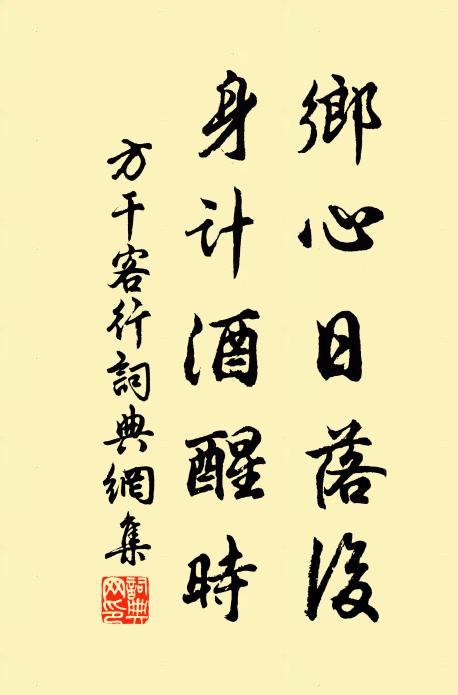 鄉心日落後
身計酒醒時
方干客行詞典網集
詞典網印